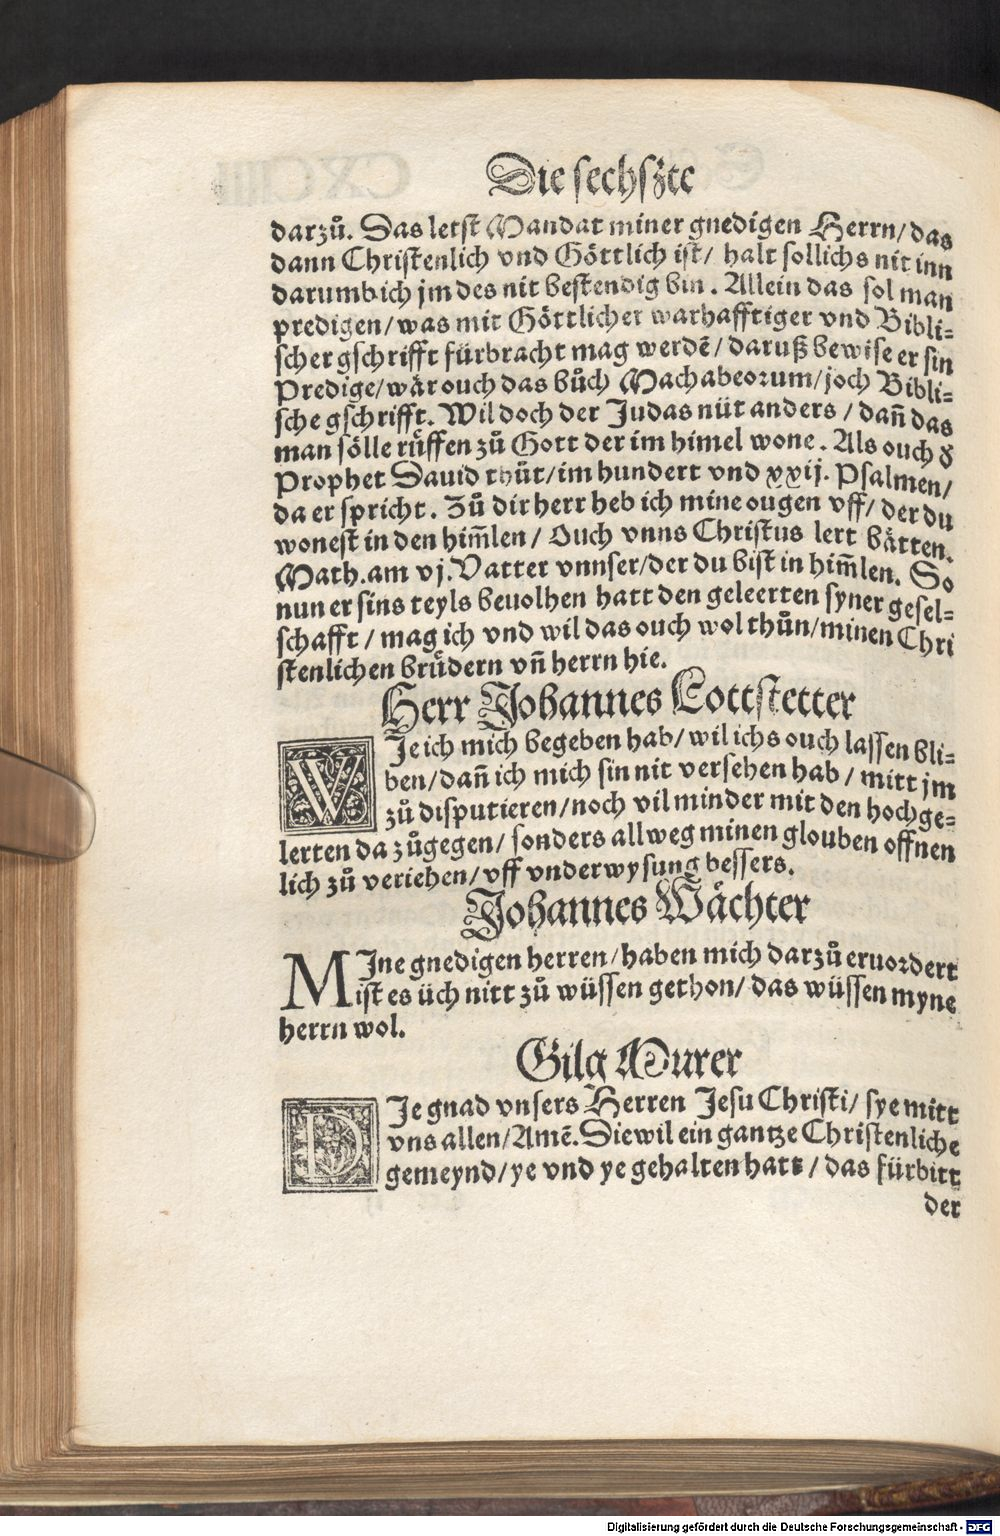 Die sechszte
darzů. Das letst Mandat miner gnedigen Herrn/ das
dann Christenlich vnd Göttlich ist/ halt sollichs nit inn
darumb ich jm des nit bestendig bin. Allein das sol man
predigen/ was mit Göttlicher warhafftiger vnd Bibli-
scher gschrifft fürbracht mag werdē/ daruß bewise er sin
Predige/ wår ouch das bůch Machabeorum/ joch Bibli-
sche gschrifft. Wil doch der Judas nüt anders/ dañ das
man sölle rüffen zů Gott der im himel wone. Als ouch ð
Prophet Dauid thůt/ im hundert vnd xxij. Psalmen/
da er spricht. Zů dir herr heb ich mine ougen vff/ der du
wonest in den him̄len/ Ouch vnns Christus lert bätten.
Math. am vj. Vatter vnnser/ der du bist in him̄len. So
nun er sins teyls beuolhen hatt den geleerten syner gesel-
schafft/ mag ich vnd wil das ouch wol thůn/ minen Chri
stenlichen brüdern vñ herrn hie.
Herr Johannes Lottstetter
WJe ich mich begeben hab/ wil ichs ouch lassen bli-
ben/ dañ ich mich sin nit versehen hab/ mitt jm
zů disputieren/ noch vil minder mit den hochge-
lerten da zůgegen/ sonders allweg minen glouben offnen
lich zů veriehen/ vff vnderwysung bessers.
Johannes Wächter
MJne gnedigen herren/ haben mich darzů eruordert
ist es üch nitt zů wüssen gethon/ das wüssen myne
herrn wol.
Gilg Murer
DJe gnad vnsers Herren Jesu Christi/ sye mitt
vns allen/ Amē. Diewil ein gantze Christenliche
gemeynd/ ye vnd ye gehalten hatt/ das fürbitt
der
Digitalisierung gefördert durch die Deutsche Forschungsgemeinschaft - DFG